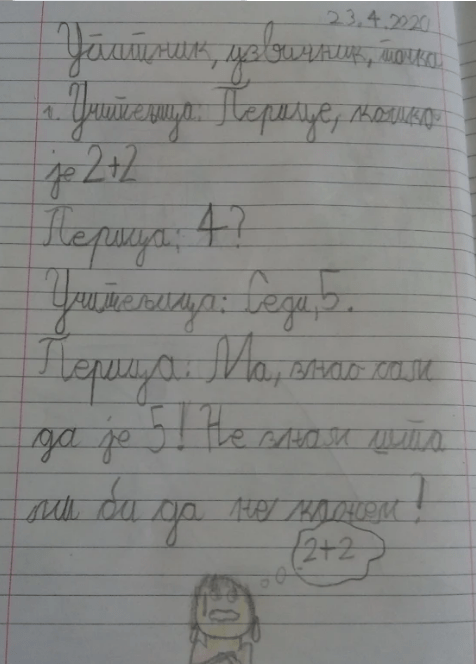 23.4.2020
Упитник, узвичник, тачка
1. Учитељица: Перице, колико
је 2+2
Перица: 4?
Учитељица: Седи, 5.
Перица: Ма, знао сам
да је 5! Не знам шта
ми би да не кажем!
2+2